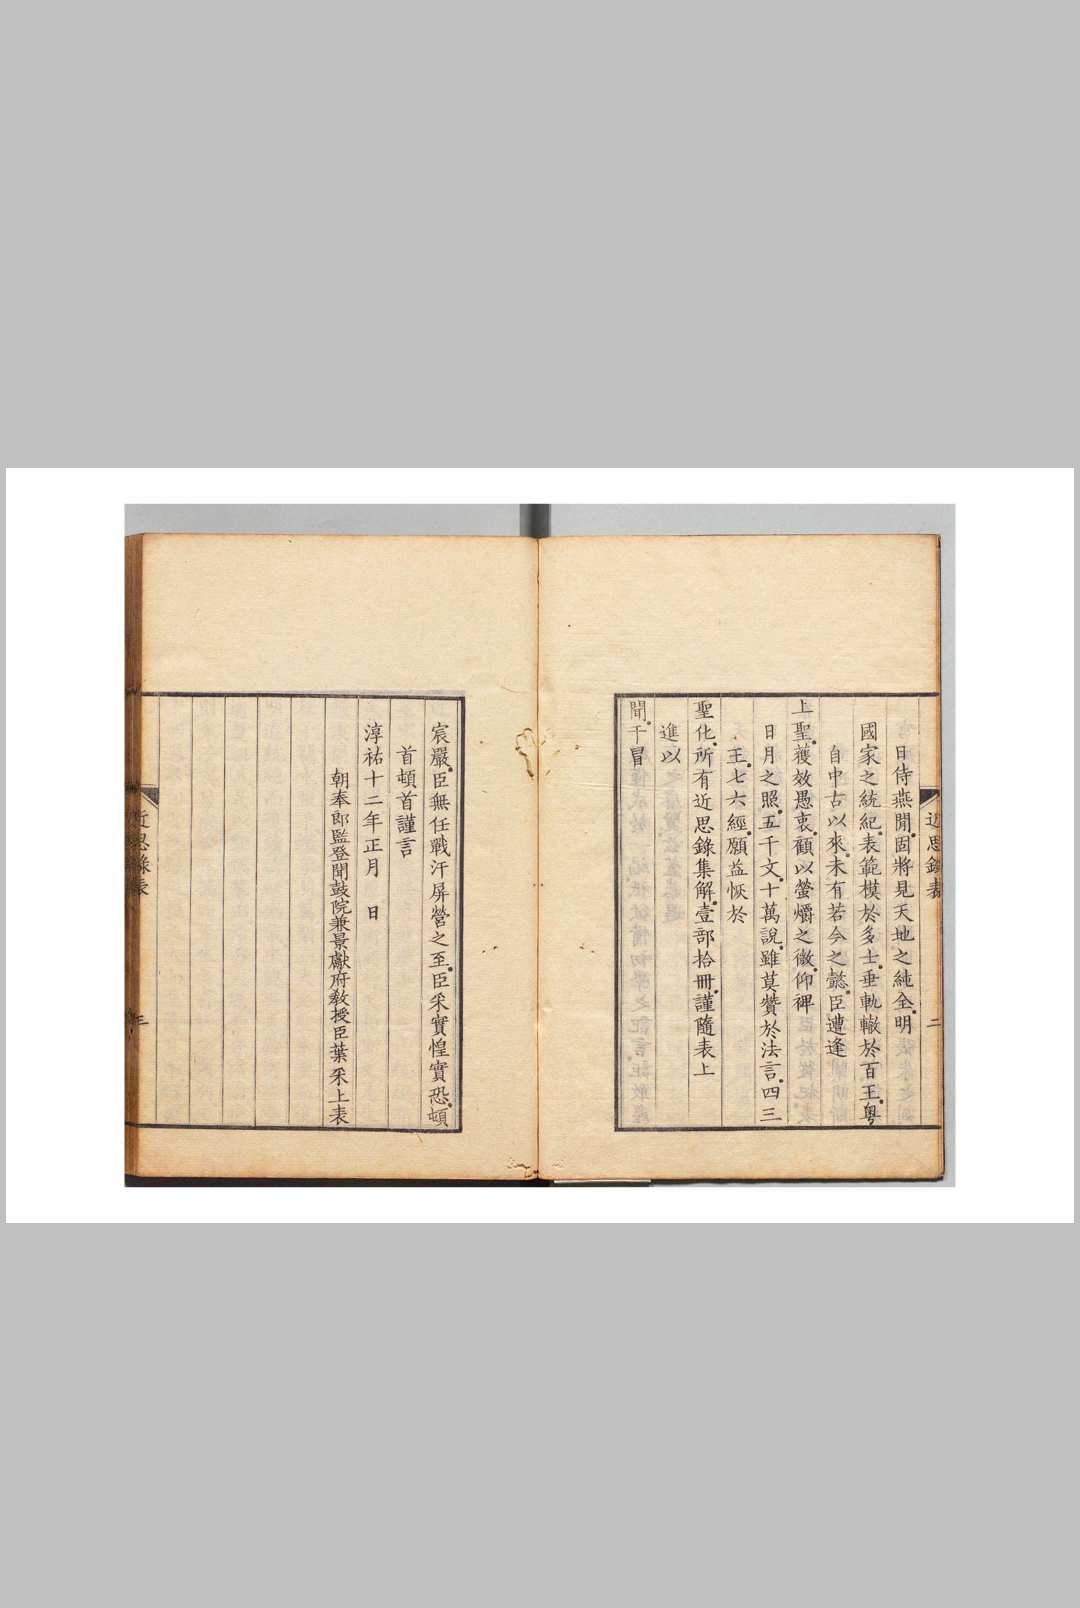 近思錄表
二
日侍燕閒。固將見天地之純全。明
國家之統紀。表範模於多士。垂軌轍於百王。粵
自中古以來。未有若今之懿。臣遭逢
上聖。獲效愚衷。顧以螢爝之微。仰裨
日月之照。五千文。十萬說。雖莫贊於法言。四三
王。七六經。願益恢於
聖化。所有近思錄集解。壹部拾冊。謹隨表上
進以
聞。干冒
宸嚴。臣無任戰汗屏營之至。臣采實惶實恐。頓
首頓首謹言
淳祐十二年正月 日
朝奉郎監登聞鼓院兼景獻府教授臣葉采上表
近思錄表
三